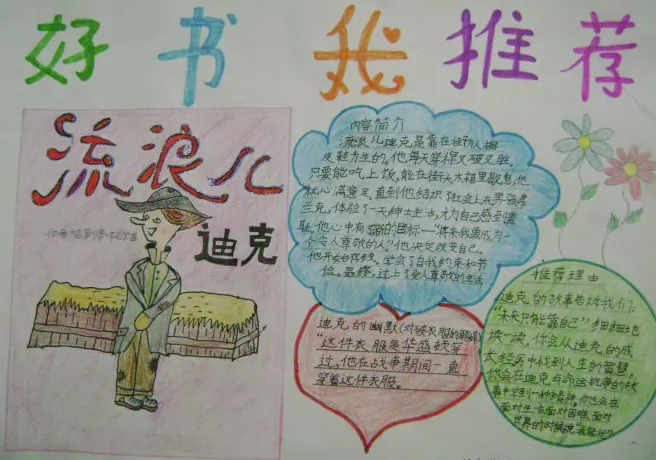 好书 我推荐
流浪儿
迪克
内容简介
流浪儿迪克是靠在街市人擦
皮鞋为生的。他每天穿得又破又脏,
只要能吃上饭,能在街头木箱里歇息,他
就心满意足。直到他结识了社会上流男孩弗
兰克,体验了一天绅士生活,才为自己感到羞
耻。他心中有了新的目标——“将来我要成为一
个令人尊敬的人”他决定改变自己。
他开始存钱,学会了自我约束和节
俭。最终,过上了受人尊敬的生活
迪克的幽默(对破衣服的解释)
“这件衣服是华盛顿穿
过,他在战争期间一直
穿着这件衣服。
推荐理由
迪克的故事告诉我们:
“未来只能靠自己”,细细地
读一读,你会从迪克的成
长经历中找到人生的智慧。
你会在迪克与命运抗争的故
事中学到一种精神,你也会在
面对生活面对困难面对
世界的时候说“我能行”